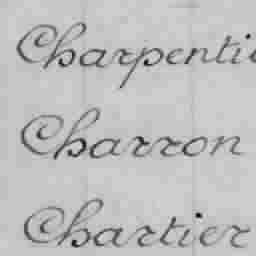 Charpenti
Charron
Chartier